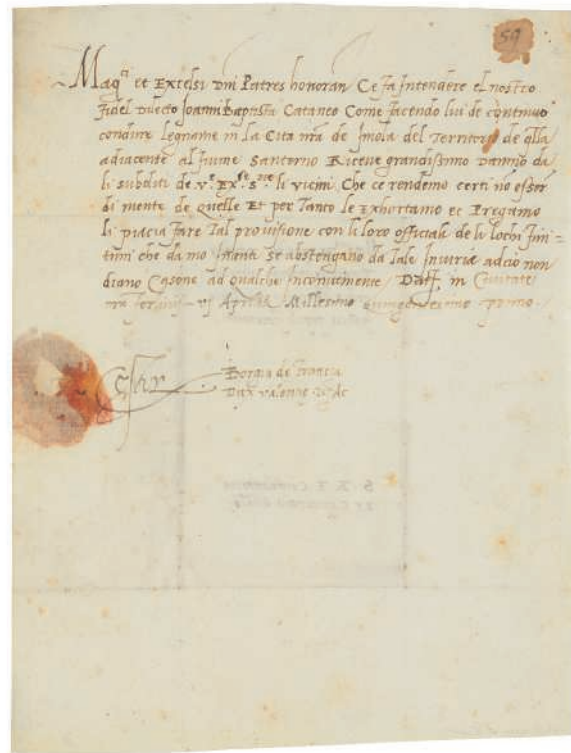 59
Mag.ci et Excelsi Dni Patres honoran. Ce fa Intendere el nostro
fidel Dilecto Joanni Baptista Cataneo Come facendo lui de continuo
condure legname in la Cita nra de Imola del Territorio de qlla
adiacente al fiume Santerno Riceve grandissimo Danno da
li subditi de v.e Ex.se S.rie li vicini Che ce rendemo certi nō esser
di mente de quelle Et per Tanto le Exhortamo et Pregamo
li piacia fare Tal provisione con li loro officiali de li lochi fini=
timi che da mo Inanti se abstengano da Tale Iniurie adcio non
diano Casone ad qualche Inconveniente Dat. in Civitate
nra vj Aprilis Millesimo quingentesimo primo
Borgia de Francia
Dux